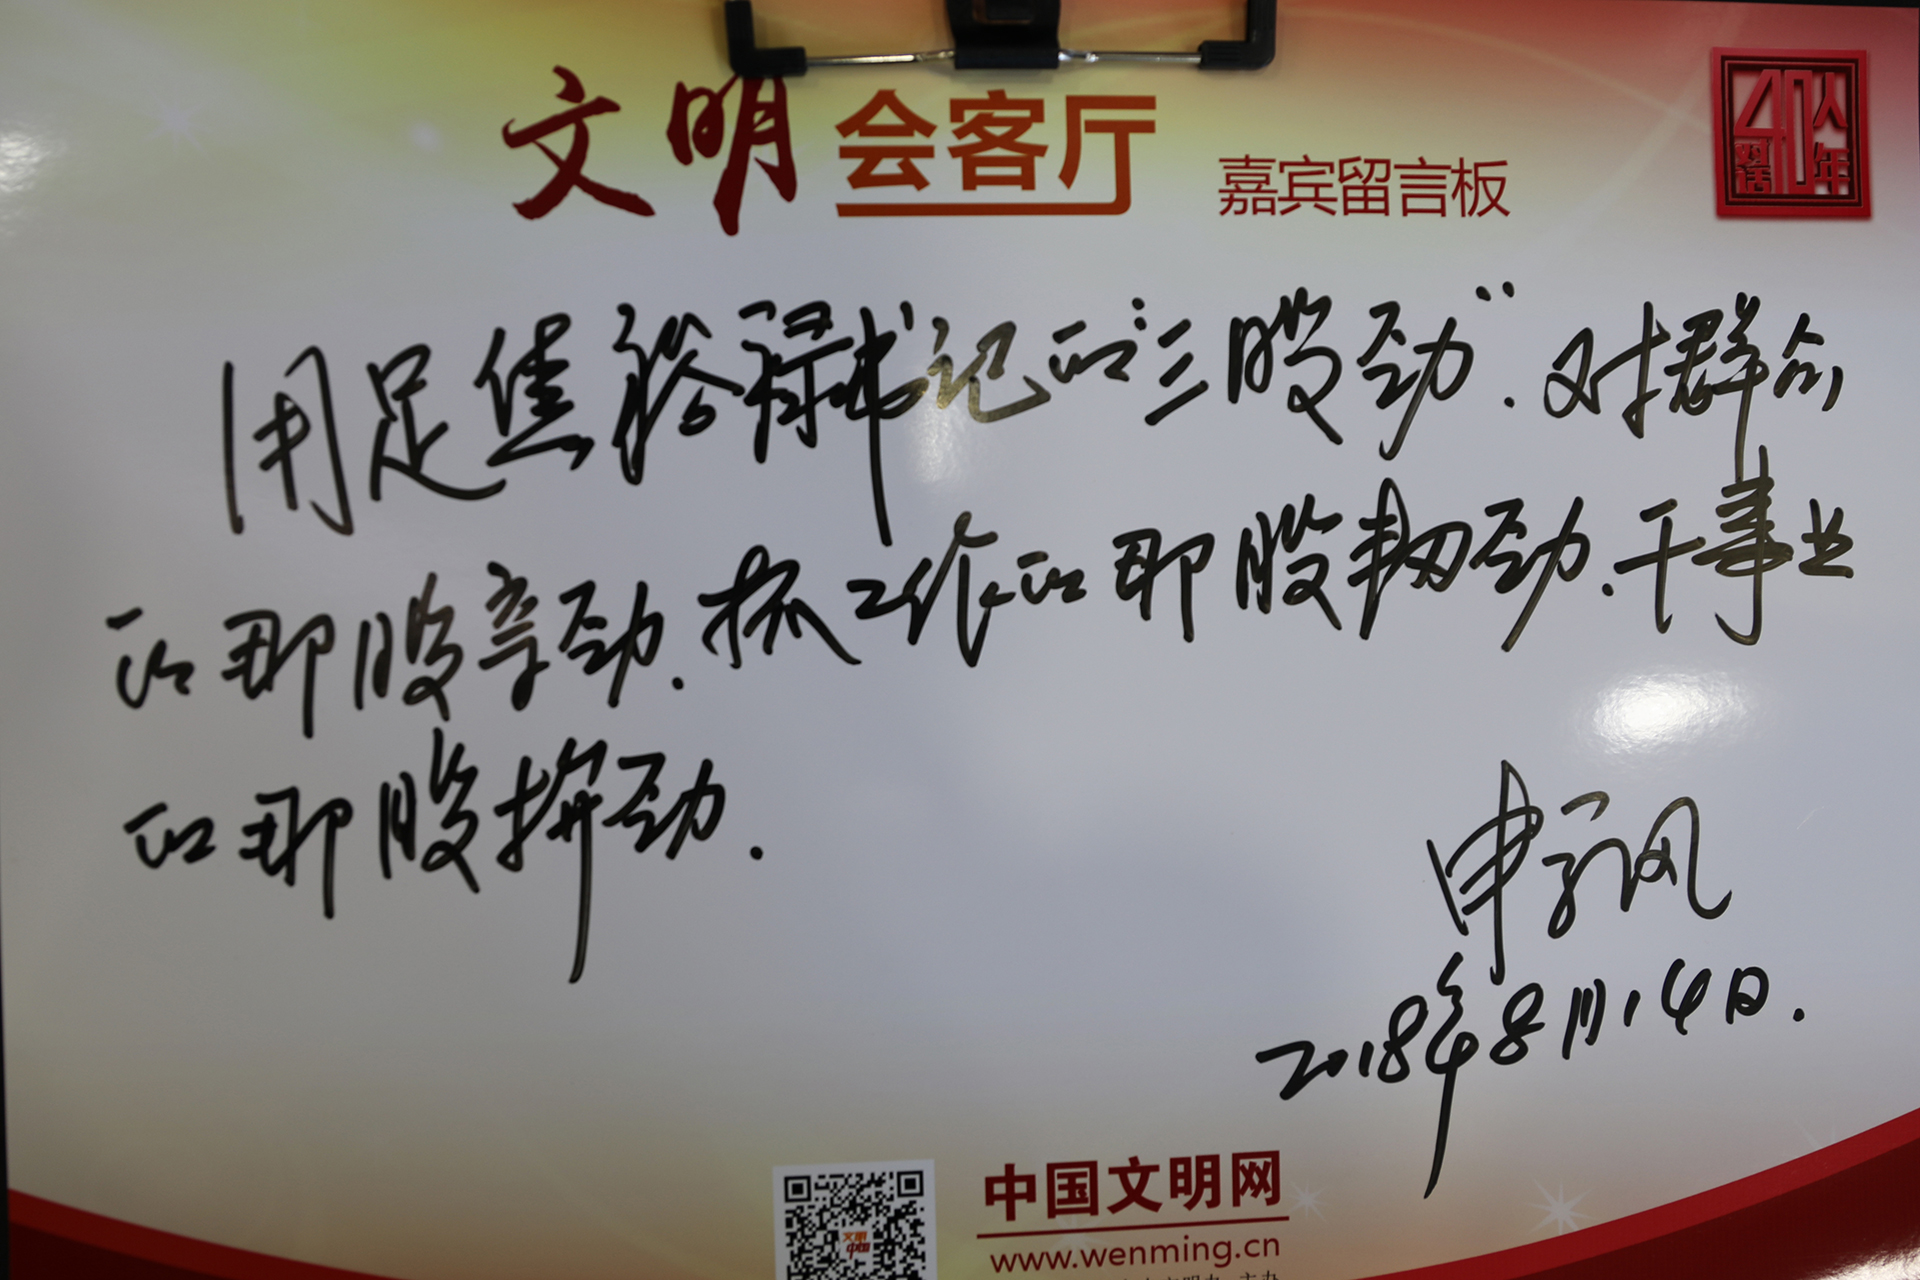 文明会客厅 嘉宾留言板
40人 对话 40年
用足焦裕禄书记的“三股劲”.对群众
的那股亲劲.抓工作的那股韧劲.干事业
的那股拼劲.
2018年8月14日.
文明中国
中国文明网
www.wenming.cn